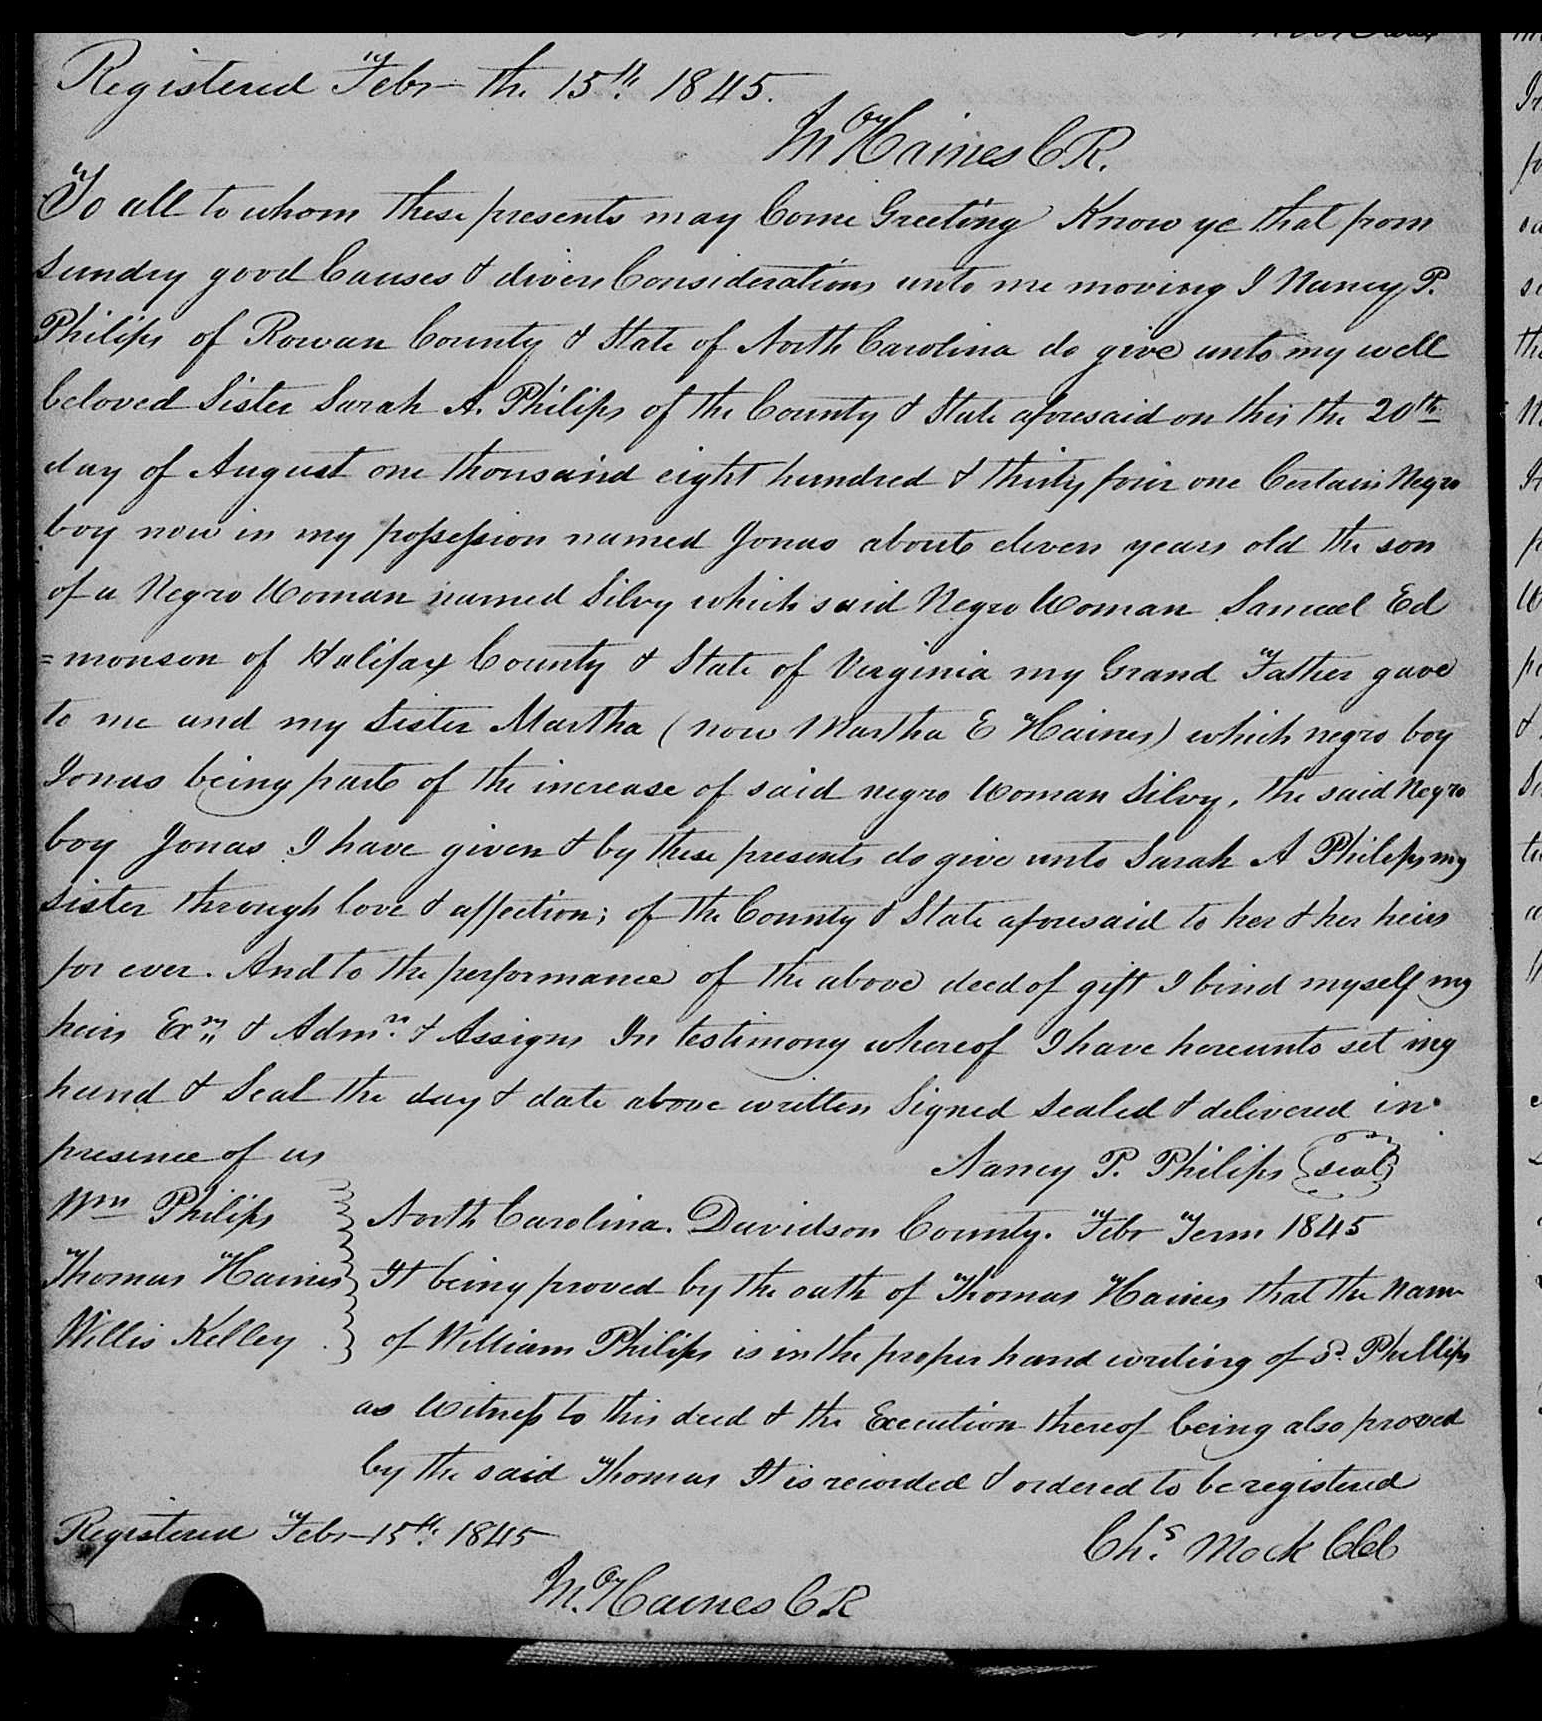 Registered Febr th. 15th. 1845.
M Haines C R.
To all to whom these presents may Come Greeting Know ye that from
sundry good Causes & divers Considerations unto me moving I Nancy P.
Philips of Rowan County & State of North Carolina do give unto my well
beloved Sister Sarah A. Philips of the County & State aforesaid on this the 20th
day of August one thousand eight hundred & thirty four one Certain Negro
boy now in my possession named Jonas about eleven years old the son
of a Negro Woman named Silvy which said Negro Woman Samuel Ed
=monson of Halifax County & State of Virginia my Grand Father gave
to me and my sister Martha (now Martha E Haines) which negro boy
Jonas being part of the increase of said negro Woman Silvy, the said Negro
boy Jonas I have given & by these presents do give unto Sarah A Philips my
sister through love & affection; of the County & State aforesaid to her & her heirs
for ever. And to the performance of the above deed of gift I bind myself my
heirs Exrs & Admrs & Assigns In testimony whereof I have hereunto set my
hand & Seal the day & date above written Signed sealed & delivered in
presence of us
Nancy P. Philips (seal)
Wm Philips
Thomas Haines
Willis Kelley
North Carolina. Davidson County. Febr Term 1845
It being proved by the oath of Thomas Haines that the Name
of William Philips is in the proper hand writing of sd. Phillips
as Witness to this deed & the Execution thereof being also proved
by the said Thomas It is recorded & ordered to be registered
Registered Febr 15th. 1845
Chs. Mock Clk
M. Haines C R